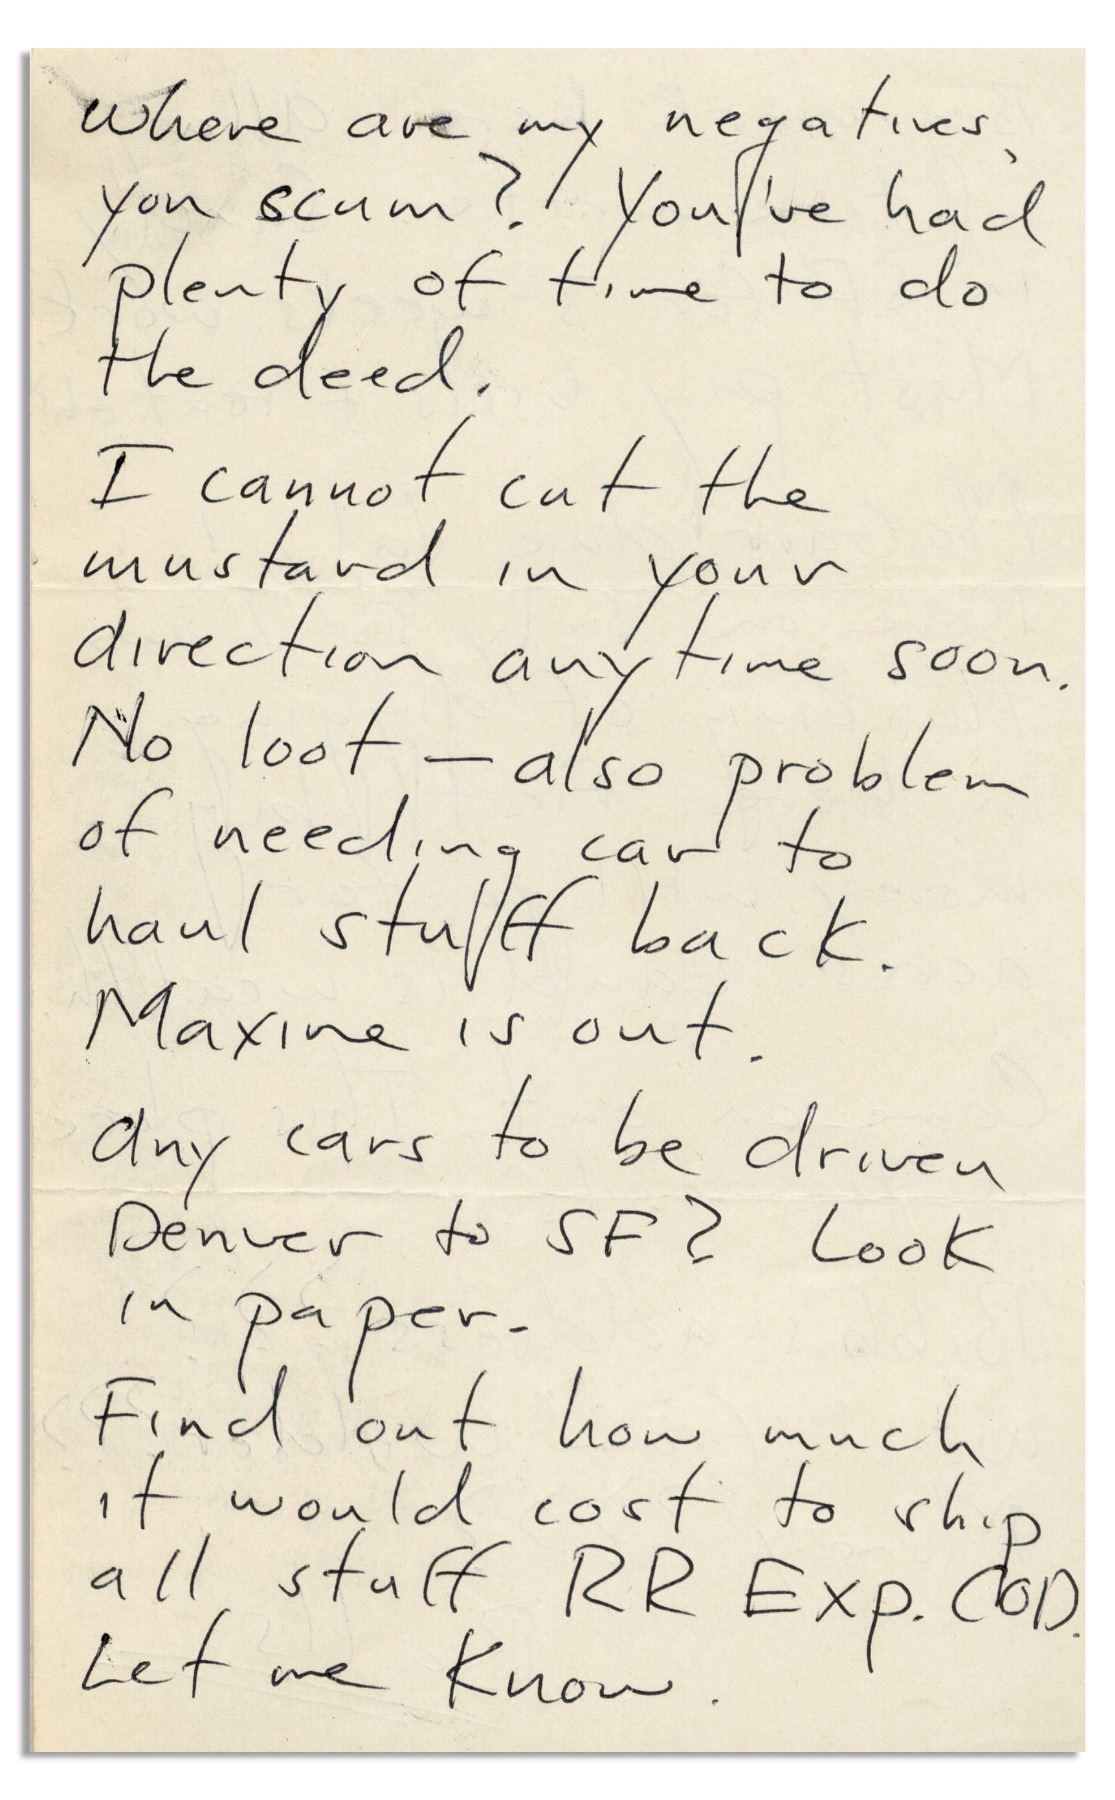 Where are my negatives,
you scum? You've had
plenty of time to do
the deed.
I cannot cut the
mustard in your
direction anytime soon.
No loot — also problem
of needing car to
haul stuff back.
Maxine is out.
Any cars to be driven
Denver to SF? Look
in paper.
Find out how much
it would cost to ship
all stuff RR Exp. COD.
Let me know.